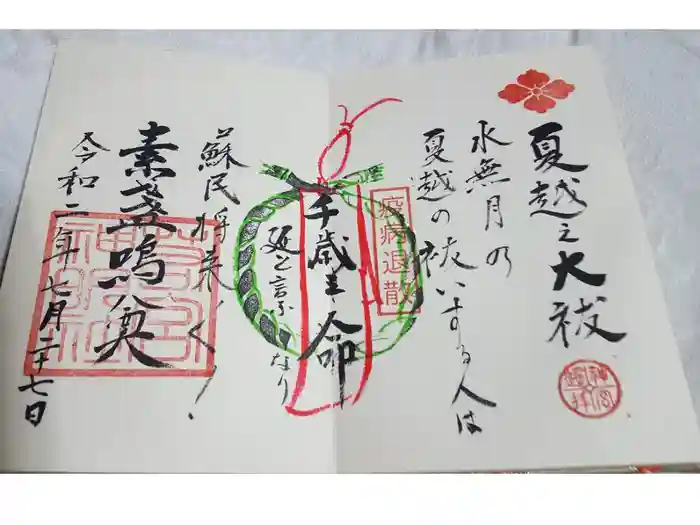 夏越之大祓
水無月の
夏越の祓いする人は
疫病退散
千歳之命
延と言ふなり
蘇民将来
素盞嗚尊
令和二年七月二十七日